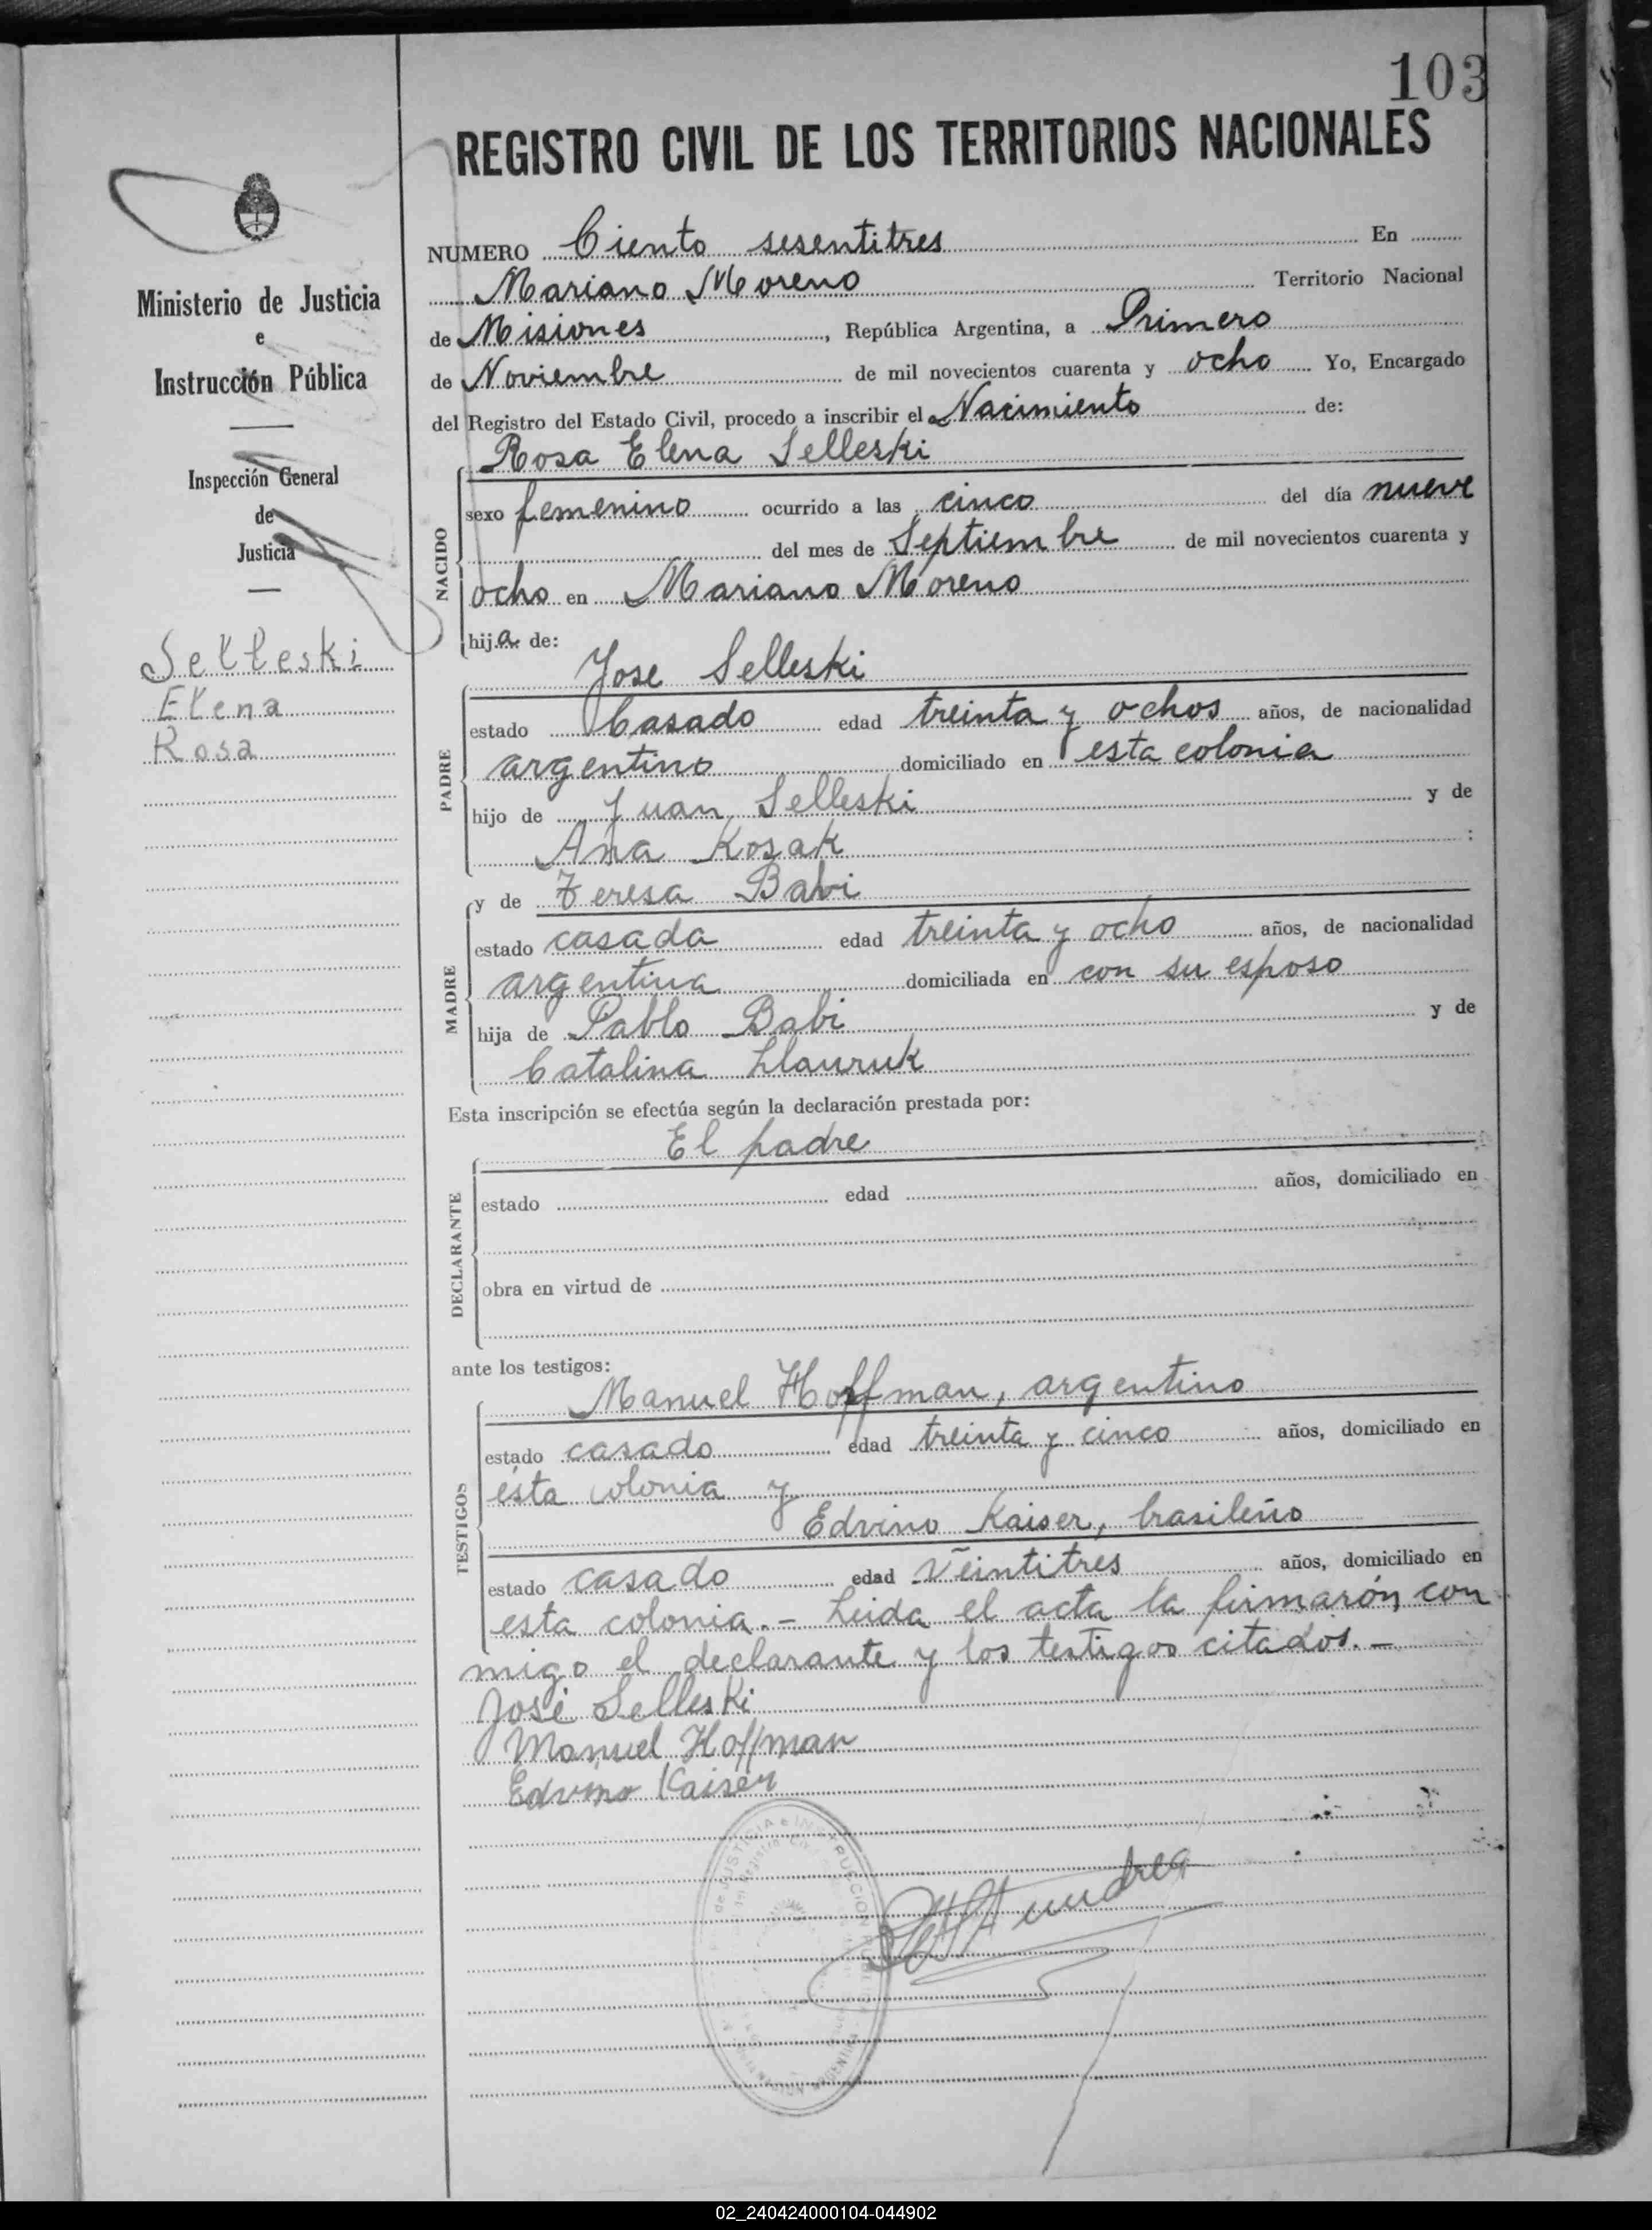 103
REGISTRO CIVIL DE LOS TERRITORIOS NACIONALES
Ministerio de Justicia
e
Instrucción Pública
Inspección General
de
Justicia
Selleski
Elena
Rosa
NUMERO Ciento sesentitres En
Mariano Moreno Territorio Nacional
de Misiones, República Argentina, a Primero
de Noviembre de mil novecientos cuarenta y ocho Yo, Encargado
del Registro del Estado Civil, procedo a inscribir el Nacimiento de:
Rosa Elena Selleski
NACIDO
sexo femenino ocurrido a las cinco del día nueve
del mes de Septiembre de mil novecientos cuarenta y
ocho en Mariano Moreno
hija de:
Jose Selleski
PADRE
estado Casado edad treinta y ochos años, de nacionalidad
argentino domiciliado en esta colonia
hijo de Juan Selleski y de
Ana Kosak :
y de Teresa Babi
MADRE
estado casada edad treinta y ocho años, de nacionalidad
argentina domiciliada en con su esposo
hija de Pablo Babi y de
Catalina
Esta inscripción se efectúa según la declaración prestada por:
El padre
DECLARANTE
estado edad años, domiciliado en
obra en virtud de
ante los testigos:
Manuel Hoffman, argentino
TESTIGOS
estado casado edad treinta y cinco años, domiciliado en
ésta colonia y
Edvino Kaiser, brasileño
estado casado edad veintitres años, domiciliado en
esta colonia.- Leida el acta la firmarón con
migo el declarante y los testigos citados.-
José Selleski
Manuel Hoffman
Edvino Kaiser
02_240424000104-044902